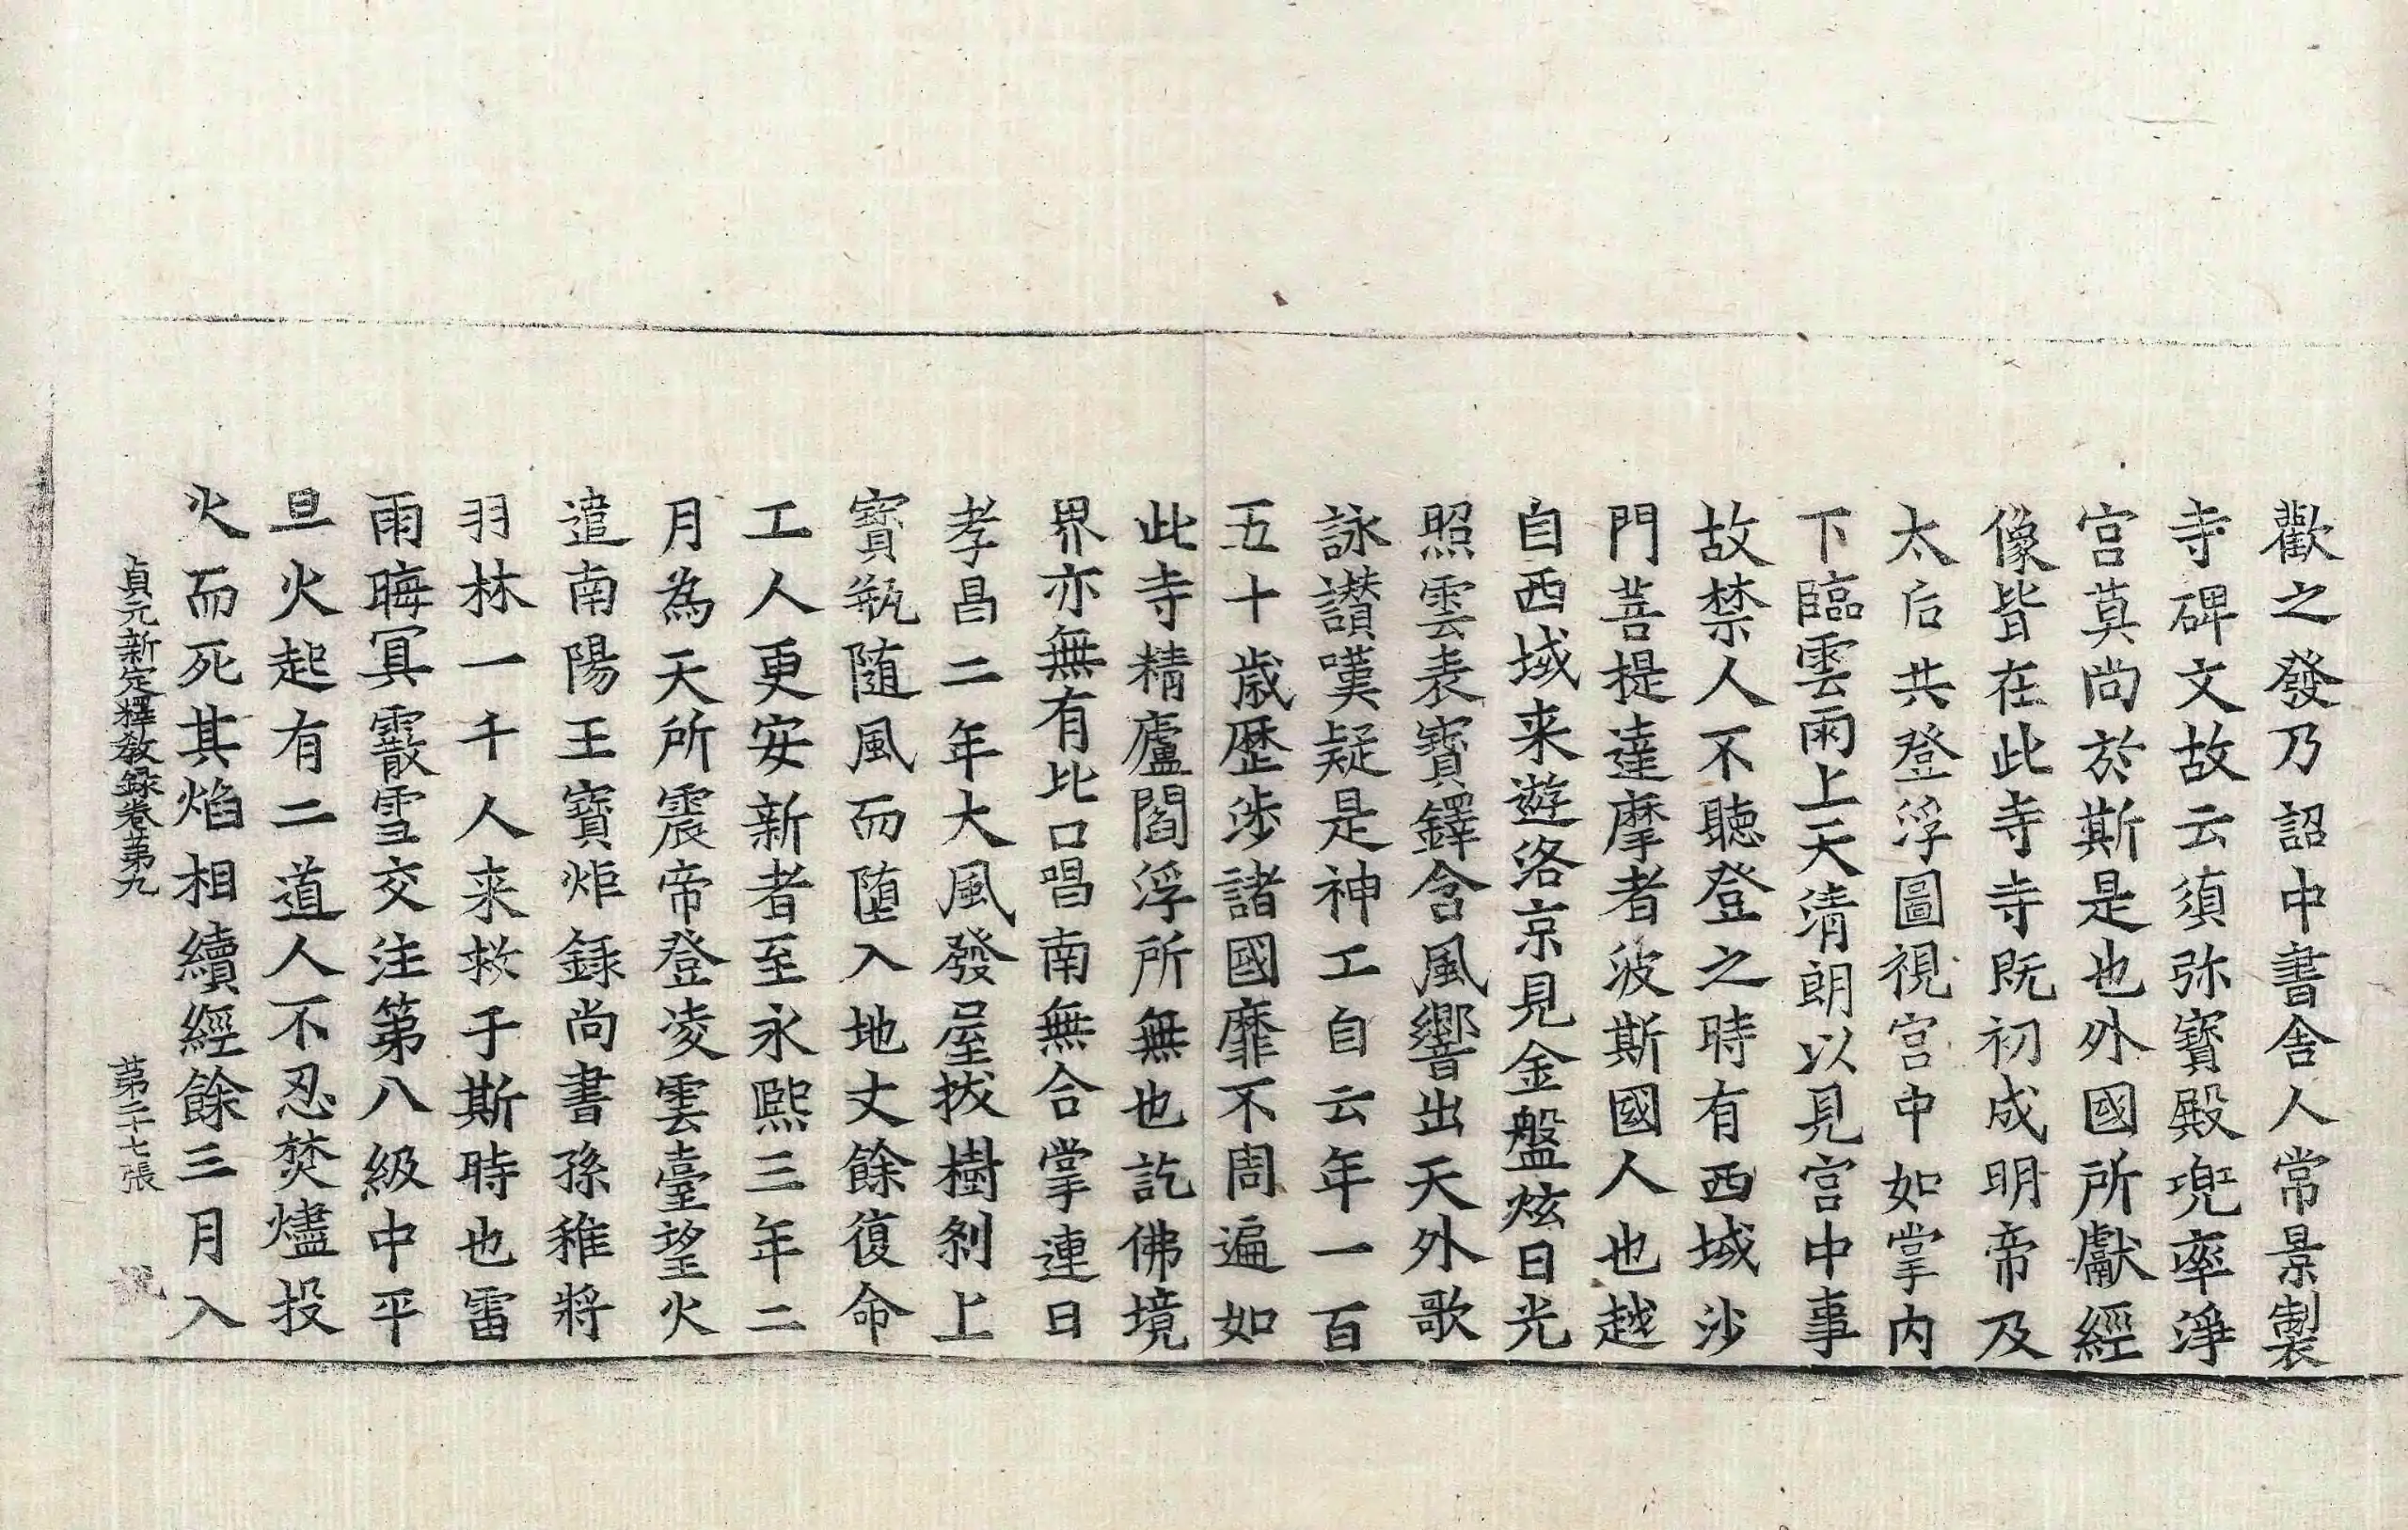 歡之發乃詔中書舍人常景製
寺碑文故云須弥寶殿兜率淨
宮莫尚於斯是也外國所獻經
像皆在此寺寺既初成明帝及
太后共登浮圖視宮中如掌内
下臨雲雨上天清朗以見宮中事
故禁人不聴登之時有西域沙
門菩提達摩者波斯國人也越
自西域来遊洛京見金盤炫日光
照雲表寶鐸含風響出天外歌
詠讃嘆疑是神工自云年一百
五十歳歴涉諸國靡不周遍如
此寺精廬閻浮所無也訖佛境
界亦無有比口唱南無合掌連日
孝昌二年大風發屋拔樹刹上
寶瓶随風而墮入地丈餘復命
工人更安新者至永熙三年二
月為天所震帝登凌雲臺望火
遣南陽王寶炬錄尚書孫稚將
羽林一千人来救于斯時也雷
雨晦冥霰雪交注第八級中平
旦火起有二道人不忍焚燼投
火而死其焰相續經餘三月入
貞元新定釋教録卷第九 第二十七張